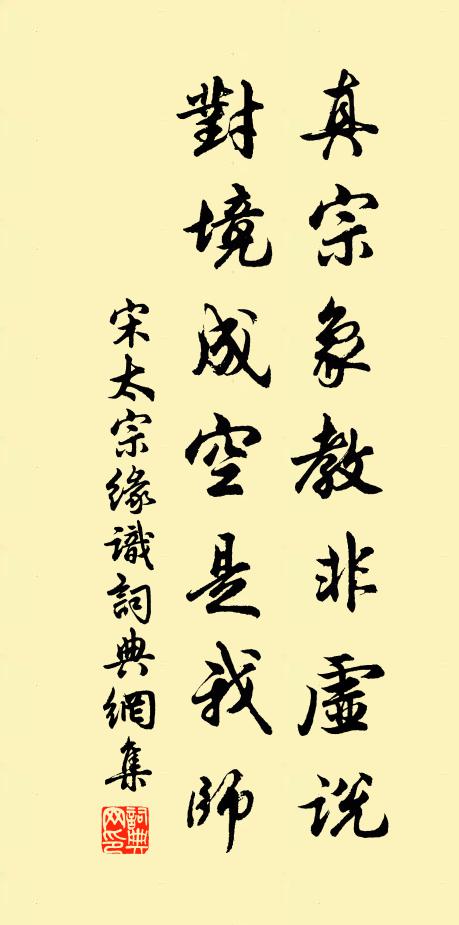 真宗象教非虛説
對境成空是我師
宋太宗緣識詞典網集
詞典
网印